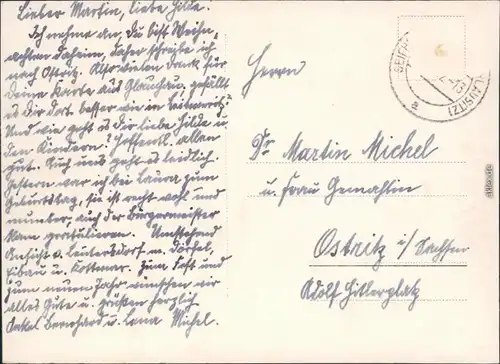 Lieber Martin, liebe Hilde.
Ich nehme an, Du bist Weih-
nachten daheim, daher schreibe ich
nach Ostritz. Also vielen Dank für
Deine Karte aus Glauchau, gefällt
es Dir dort besser wie in Leitmeritz?
Und wie geht es Dir liebe Hilde u.
den Kindern? Hoffentl. allen
gut. Auch uns geht es leidlich.
Gestern war ich bei Laura zum
Geburtstag, sie ist recht wohl und
munter, auch der Bürgermeister
kam gratulieren. Umstehend
Ansicht v. Leutersdorf m.
Eibau u. Kottmar. Zum Fest und
zum neuen Jahr wünschen wir
alles Gute u. grüßen herzlich
Onkel Bernhard u. Lena Michel.
SEIF
(LAUSITZ)
a
Herrn
Dr Martin Michel
u. Frau Gemahlin
Ostritz i/Sachsen
Adolf Hitlerplatz